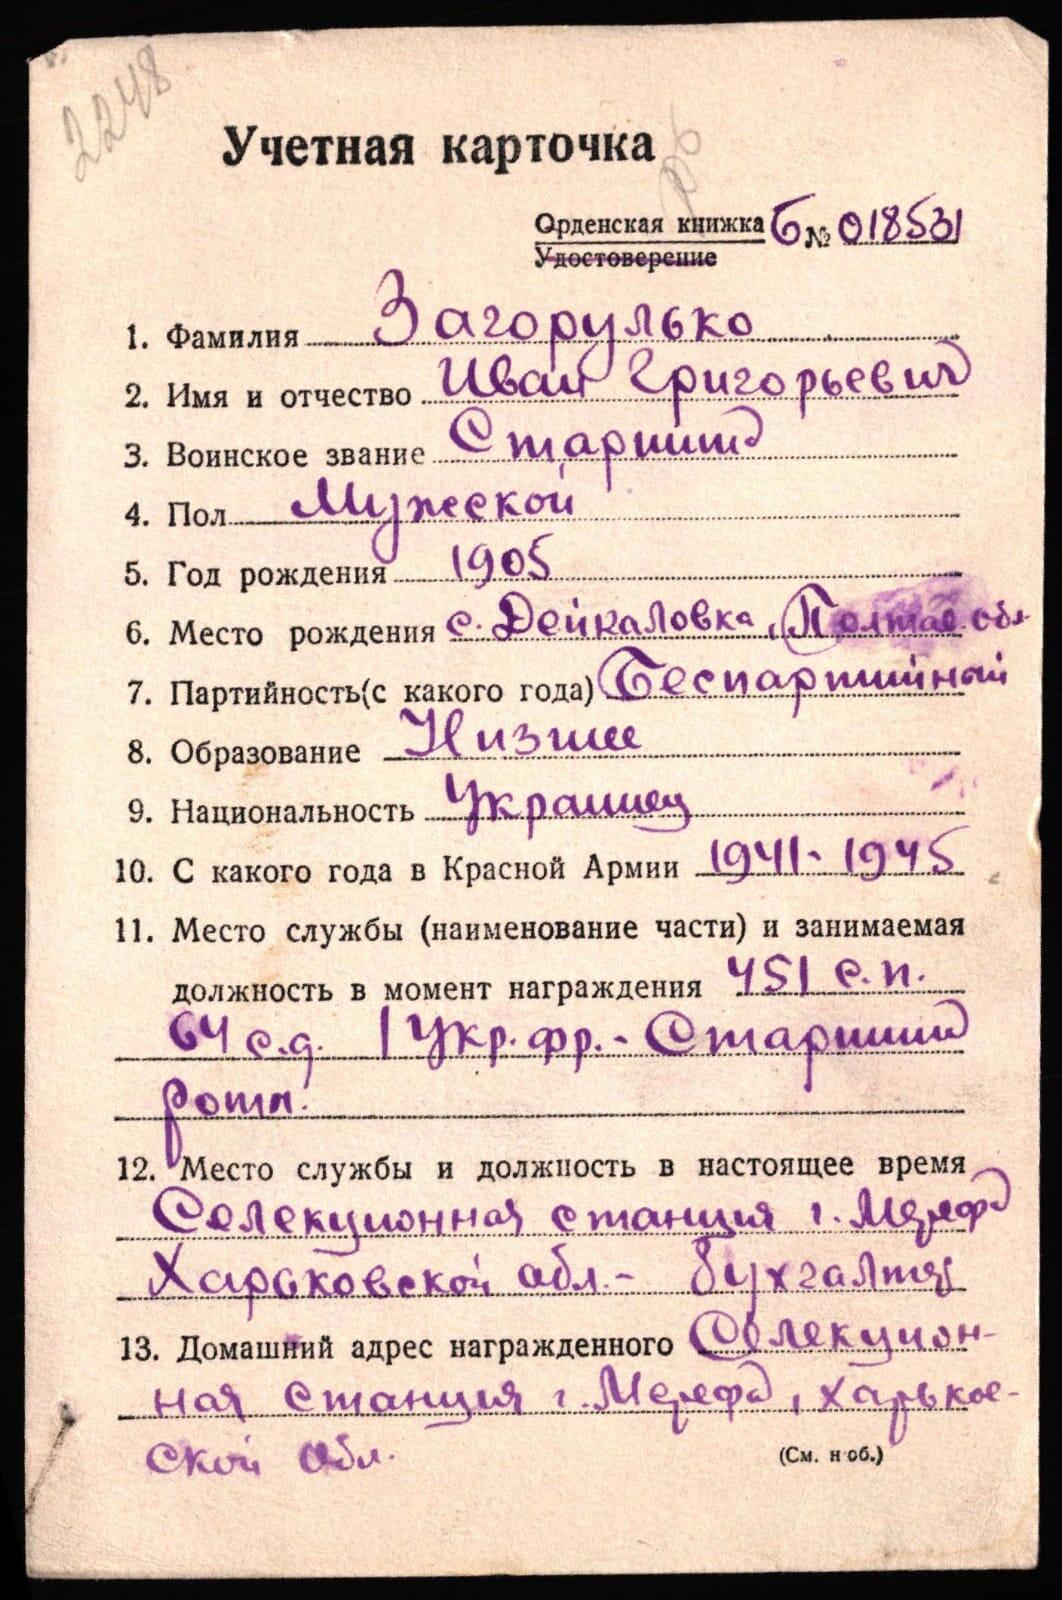 2248
Учетная карточка
Орденская книжка Б № 018531
Удостоверение
1. Фамилия Загорулько
2. Имя и отчество Иван Григорьевич
3. Воинское звание Старшина
4. Пол Мужской
5. Год рождения 1905
6. Место рождения с. Дейкаловка, Полтав. обл.
7. Партийность (с какого года) Беспартийный
8. Образование Низшее
9. Национальность Украинец
10. С какого года в Красной Армии 1941-1945
11. Место службы (наименование части) и занимаемая
должность в момент награждения 451 с.п.
64 с.д. 1 Укр. фр. - Старшина
роты.
12. Место службы и должность в настоящее время
Селекционная станция г. Мерефа
Харьковской обл. - бухгалтер
13. Домашний адрес награжденного Селекцион-
ная станция г. Мерефа, Харьков-
ской обл.
(См. н об.)